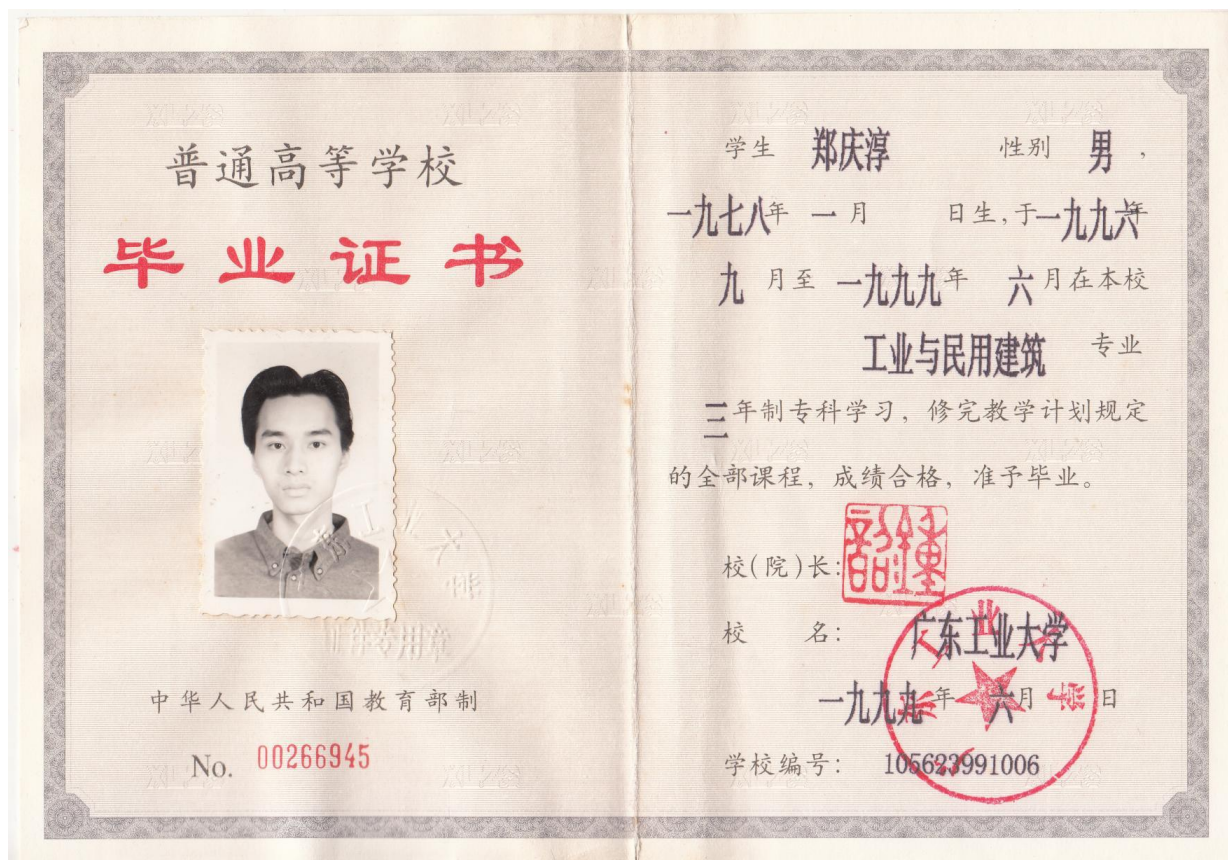 普通高等学校
毕业证书
证件专用章
中华人民共和国教育部制
No. 00266945
学生 郑庆淳 性别 男,
一九七八年 一月 日生,于一九九六年
九 月至 一九九九年 六月在本校
工业与民用建筑 专业
三年制专科学习,修完教学计划规定
的全部课程,成绩合格,准予毕业。
校(院)长:
校 名: 广东工业大学
一九九九年 六月 日
学校编号: 105623991006